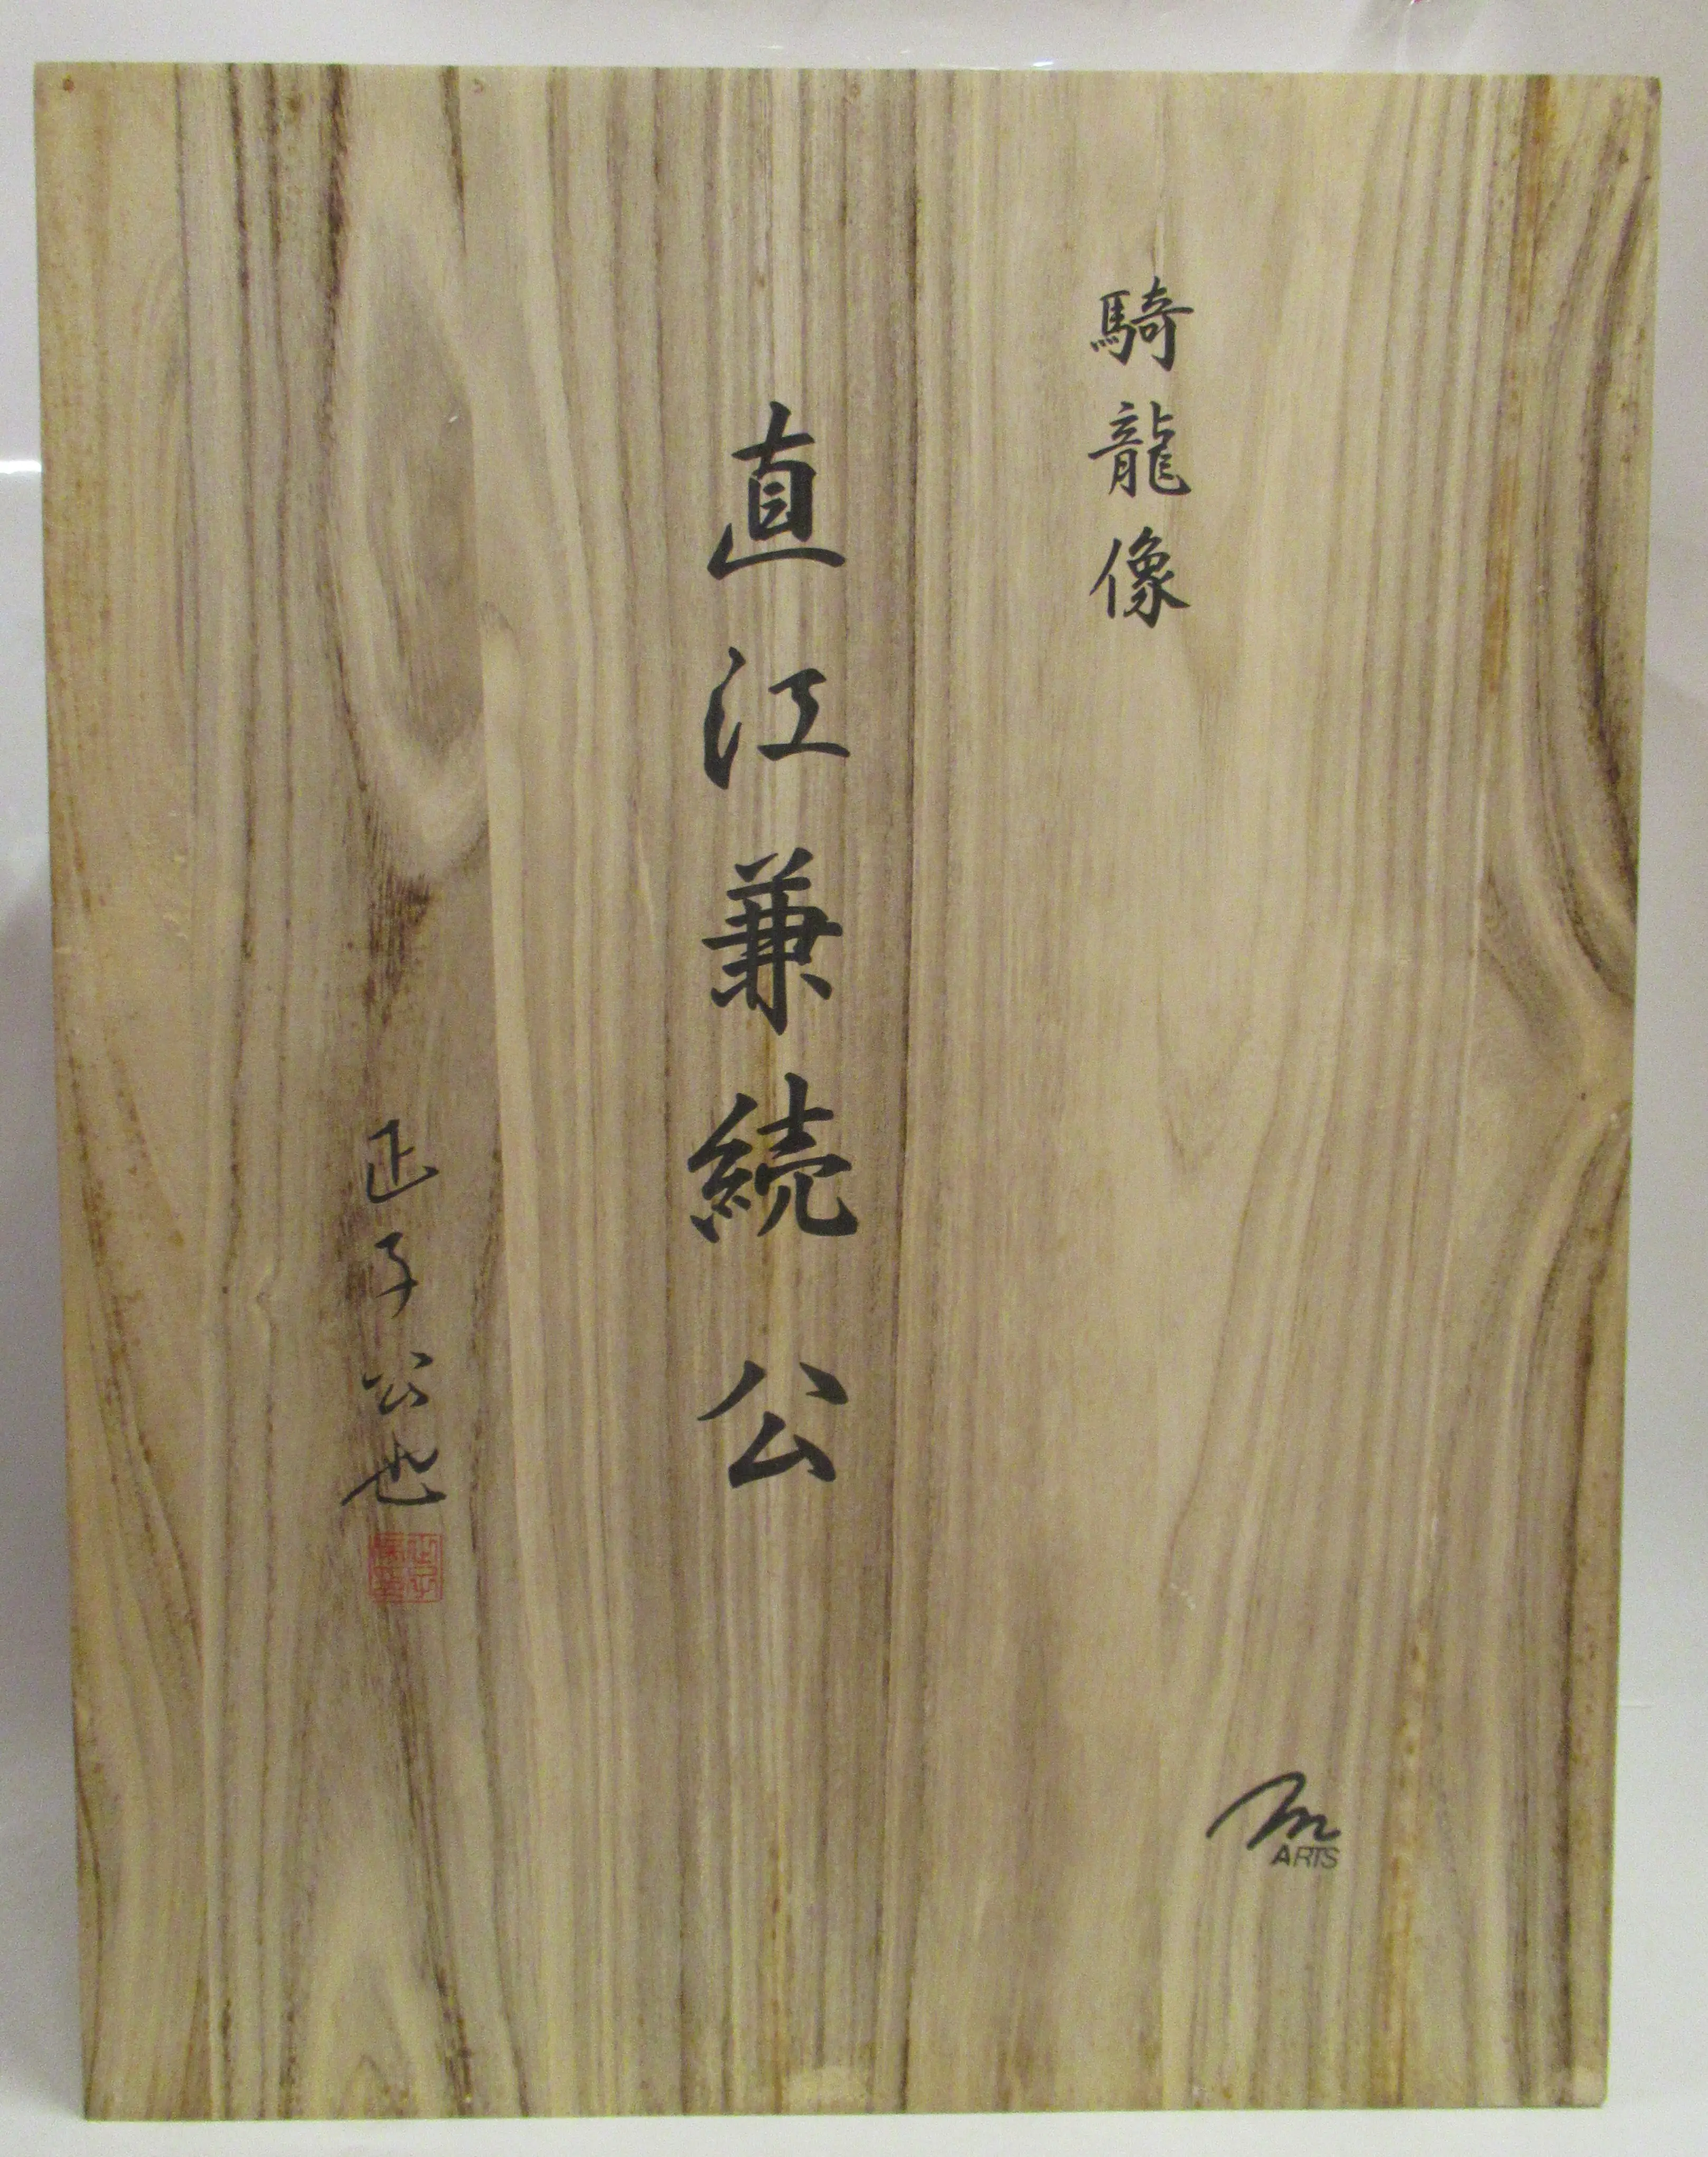 騎龍像
直江兼続公
正子公也
m
ARTS